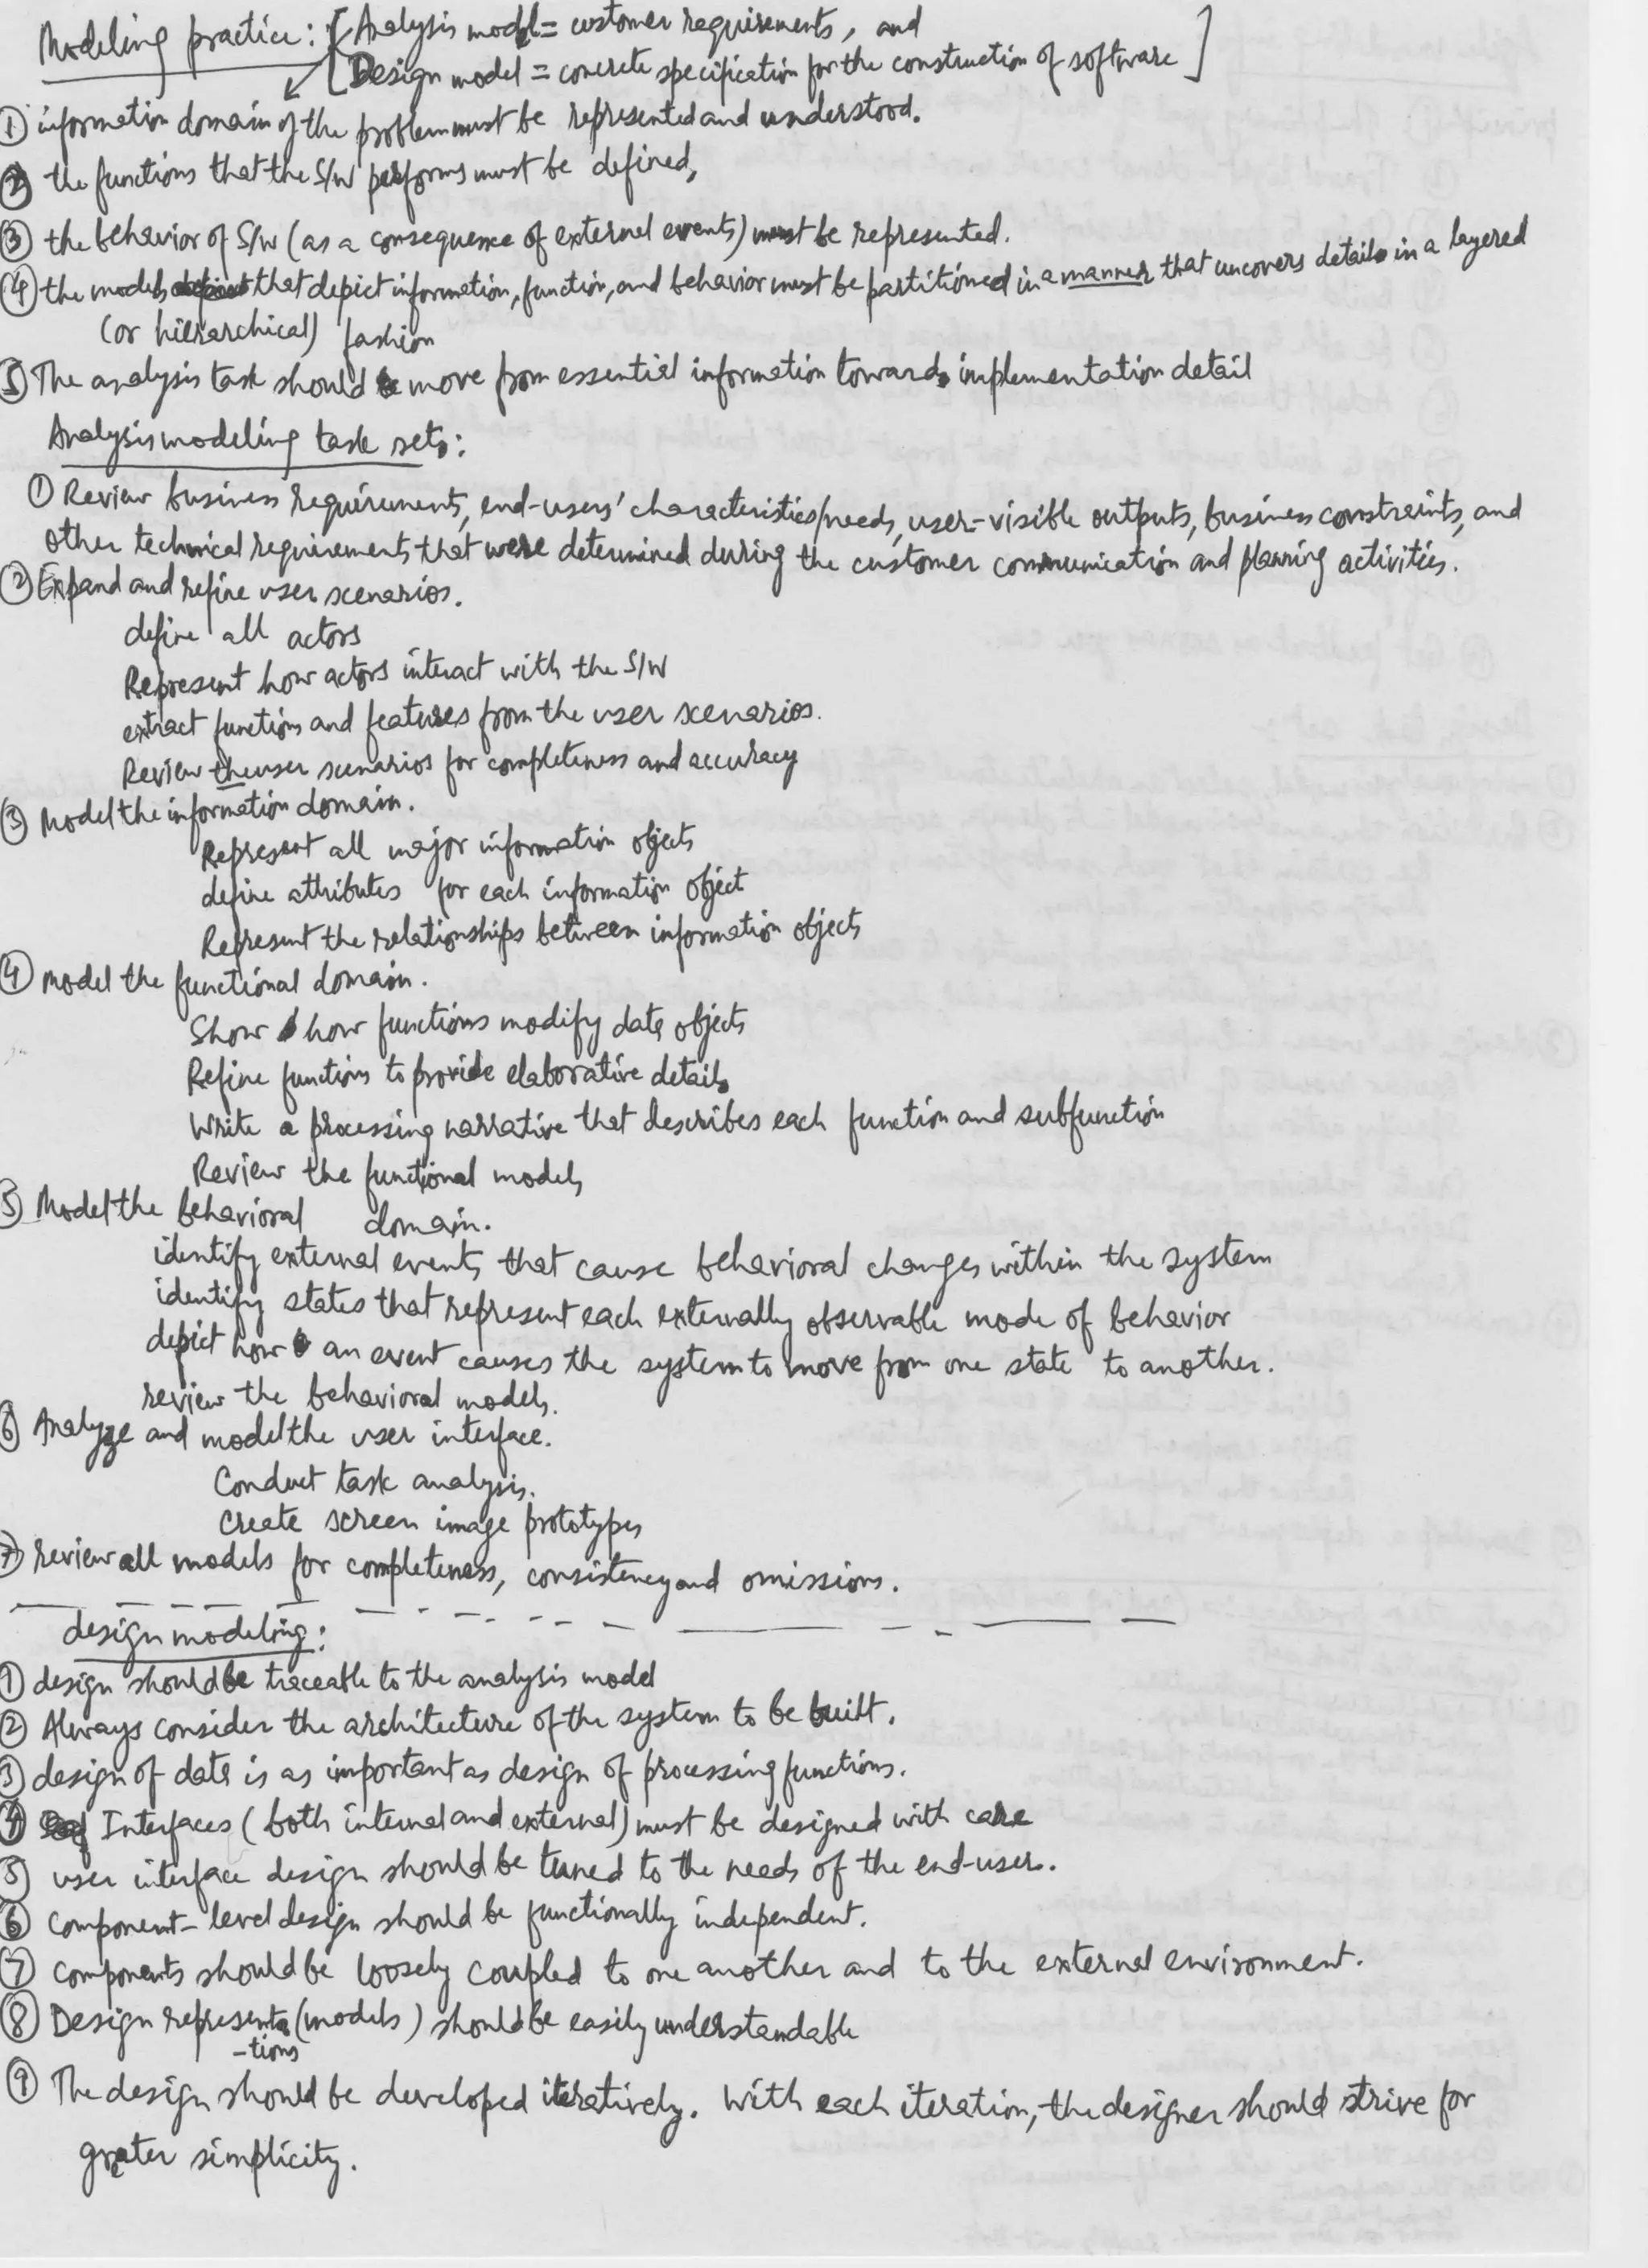 Modeling practice: [Analysis model = customer requirements, and
Design model = concrete specification for the construction of software]
① information domain of the problem must be represented and understood.
② the functions that the S/W performs must be defined,
③ the behavior of S/W (as a consequence of external events) must be represented.
④ the models that depict information, function, and behavior must be partitioned in a manner that uncovers details in a layered
(or hierarchical) fashion
⑤ The analysis task should move from essential information towards implementation detail
Analysis modeling task sets:
① Review business requirements, end-users' characteristics/needs, user-visible outputs, business constraints, and
other technical requirements that were determined during the customer communication and planning activities.
② Expand and refine user scenarios.
define all actors
Represent how actors interact with the S/W
extract functions and features from the user scenarios.
Review the user scenarios for completeness and accuracy
③ Model the information domain.
Represent all major information objects
define attributes for each information object
Represent the relationships between information objects
④ model the functional domain.
Show how functions modify data objects
Refine functions to provide elaborative details
Write a processing narrative that describes each function and subfunction
Review the functional models
5 Model the behavioral domain.
identify external events that cause behavioral changes within the system
identify states that represent each externally observable mode of behavior
depict how an event causes the system to move from one state to another.
review the behavioral models.
⑥ Analyze and model the user interface.
Conduct task analysis.
Create screen image prototypes
⑦ review all models for completeness, consistency and omissions.
design modeling:
① design should be traceable to the analysis model
② Always consider the architecture of the system to be built.
③ design of data is as important as design of processing functions.
④ Interfaces (both internal and external) must be designed with care
⑤ user interface design should be tuned to the needs of the end-user.
⑥ Component-level design should be functionally independent.
⑦ components should be loosely coupled to one another and to the external environment.
⑧ Design representa (models) should be easily understandable
-tions
⑨ The design should be developed iteratively. With each iteration, the designer should strive for
greater simplicity.